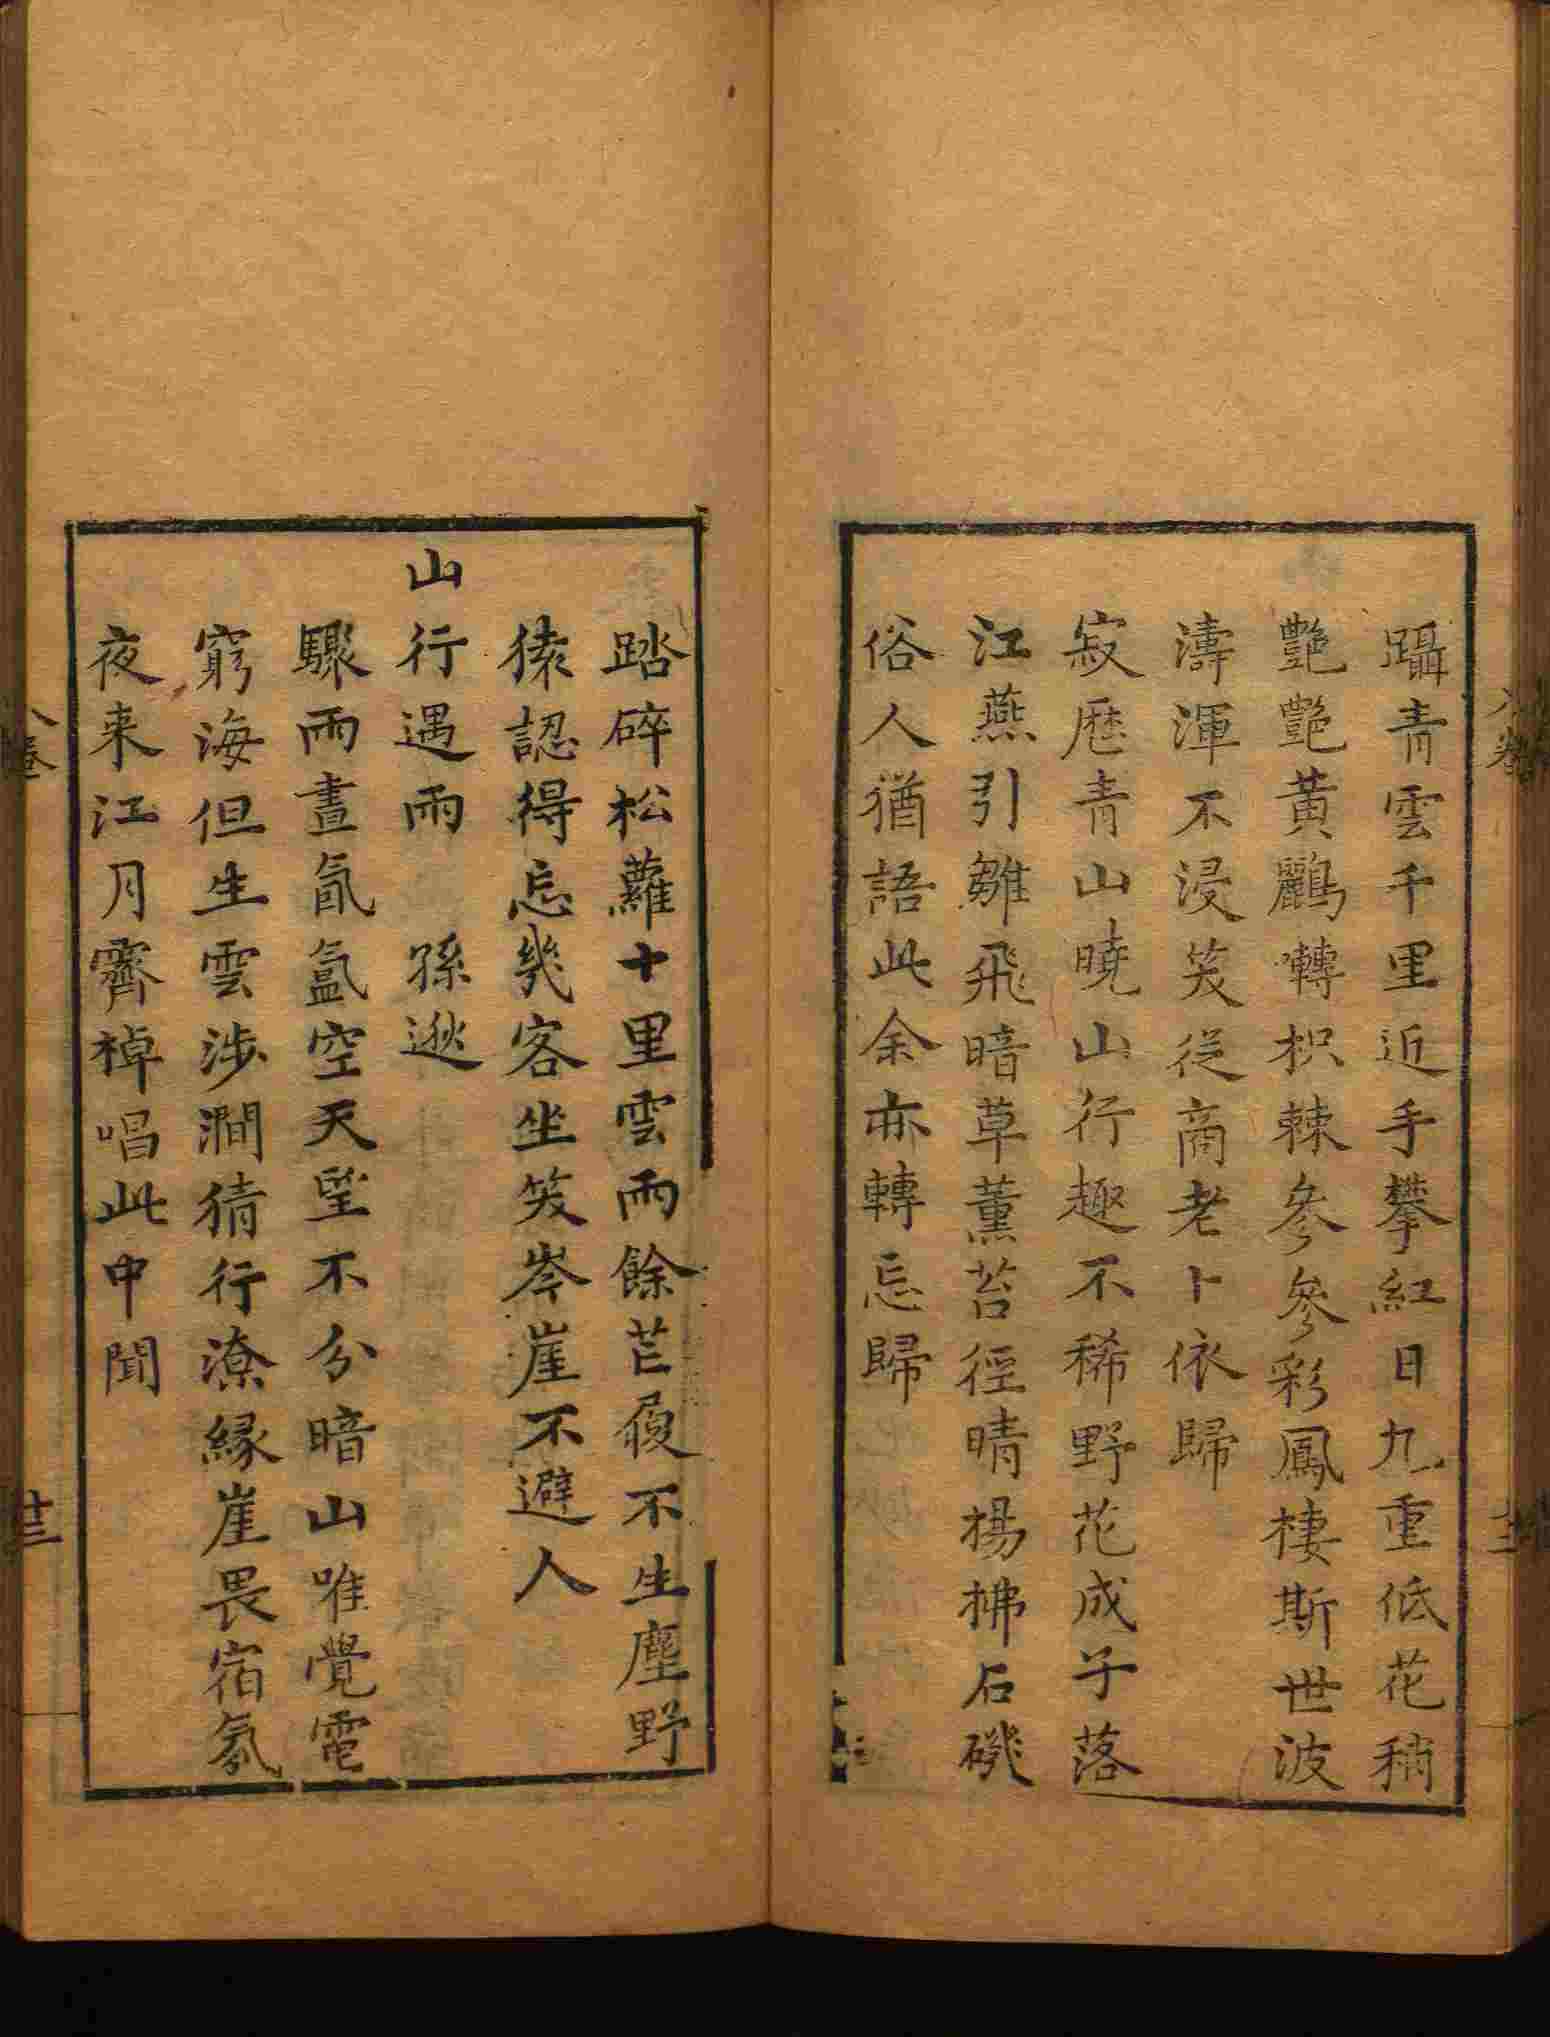 躡青雲千里近手攀紅日九重低花稍
艷艷黃鸝囀枳棘參參彩鳳棲斯世波
濤渾不浸笑從商老卜依歸
寂歷青山曉山行趣不稀野花成子落
江燕引雛飛暗草薰苔徑晴楊拂石磯
俗人猶語此余亦轉忘歸
踏碎松蘿十里雲雨餘芒屐不生塵野
猿認得忘幾客坐笑岑崖不避人
山行遇雨　孫逖
驟雨晝氤氳空天望不分暗山唯覺電
窮海但生雲涉澗猜行潦緣崖畏宿氛
夜来江月霽棹唱此中聞
八卷
廿三